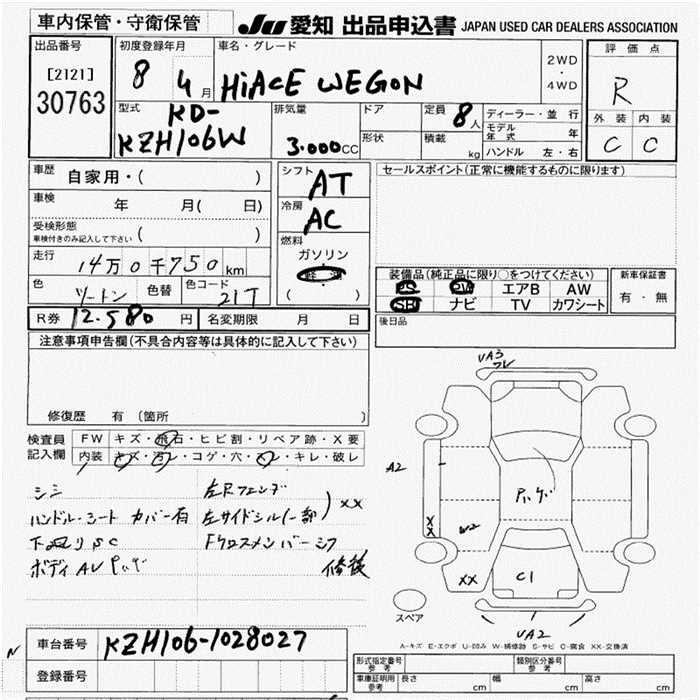 車内保管・守衛保管
JU 愛知 出品申込書 JAPAN USED CAR DEALERS ASSOCIATION
出品番号
[2121]
30763
初度登録年月
8 4月
車名・グレード
HiACE WEGON
2WD
・
4WD
評価点
R
外装 内装
C C
型式
KD-
KZH106W
排気量
3.000CC
ドア
形状
定員 8人
積載 kg
ディーラー・並行
モデル年式 年
ハンドル 左・右
車歴 自家用・( )
車検 年 月( 日)
受検形態
車検付きのみ記入して下さい ( )
走行 14万0千750km
色 ツートン 色替 色コード 21T
R券 12.580円 名変期限 月 日
シフト AT
冷房 AC
燃料
ガソリン
軽油
( )
セールスポイント(正常に機能するものに限ります)
装備品(純正品に限り○をつけてください)
PS PW エアB AW
SR ナビ TV カワシート
新車保証書
有・無
後日品
注意事項申告欄(不具合内容等は具体的に記入して下さい)
修復歴 有 (箇所 )
検査員記入欄
FW キズ・飛石・ヒビ割・リペア跡・X要
内装 キズ・汚レ・コゲ・穴・スレ・キレ・破レ
シミ
ハンドル・シート カバー有
下廻りSC
ボディAU
左Rフェンダ
左サイドシル(一部)
XX
Fクロスメンバーシフ
修後
UA3
フレ
A2
X
X
W2
XX
C1
UA2
スペア
A-キズ E-エクボ U-凹み W-補修跡 S-サビ C-腐食 XX-交換済
N
車台番号 KZH106-1028027
登録番号
形式指定番号 参考
類別区分番号 参考
車庫証明用 参考 長さ cm 幅 cm 高さ cm